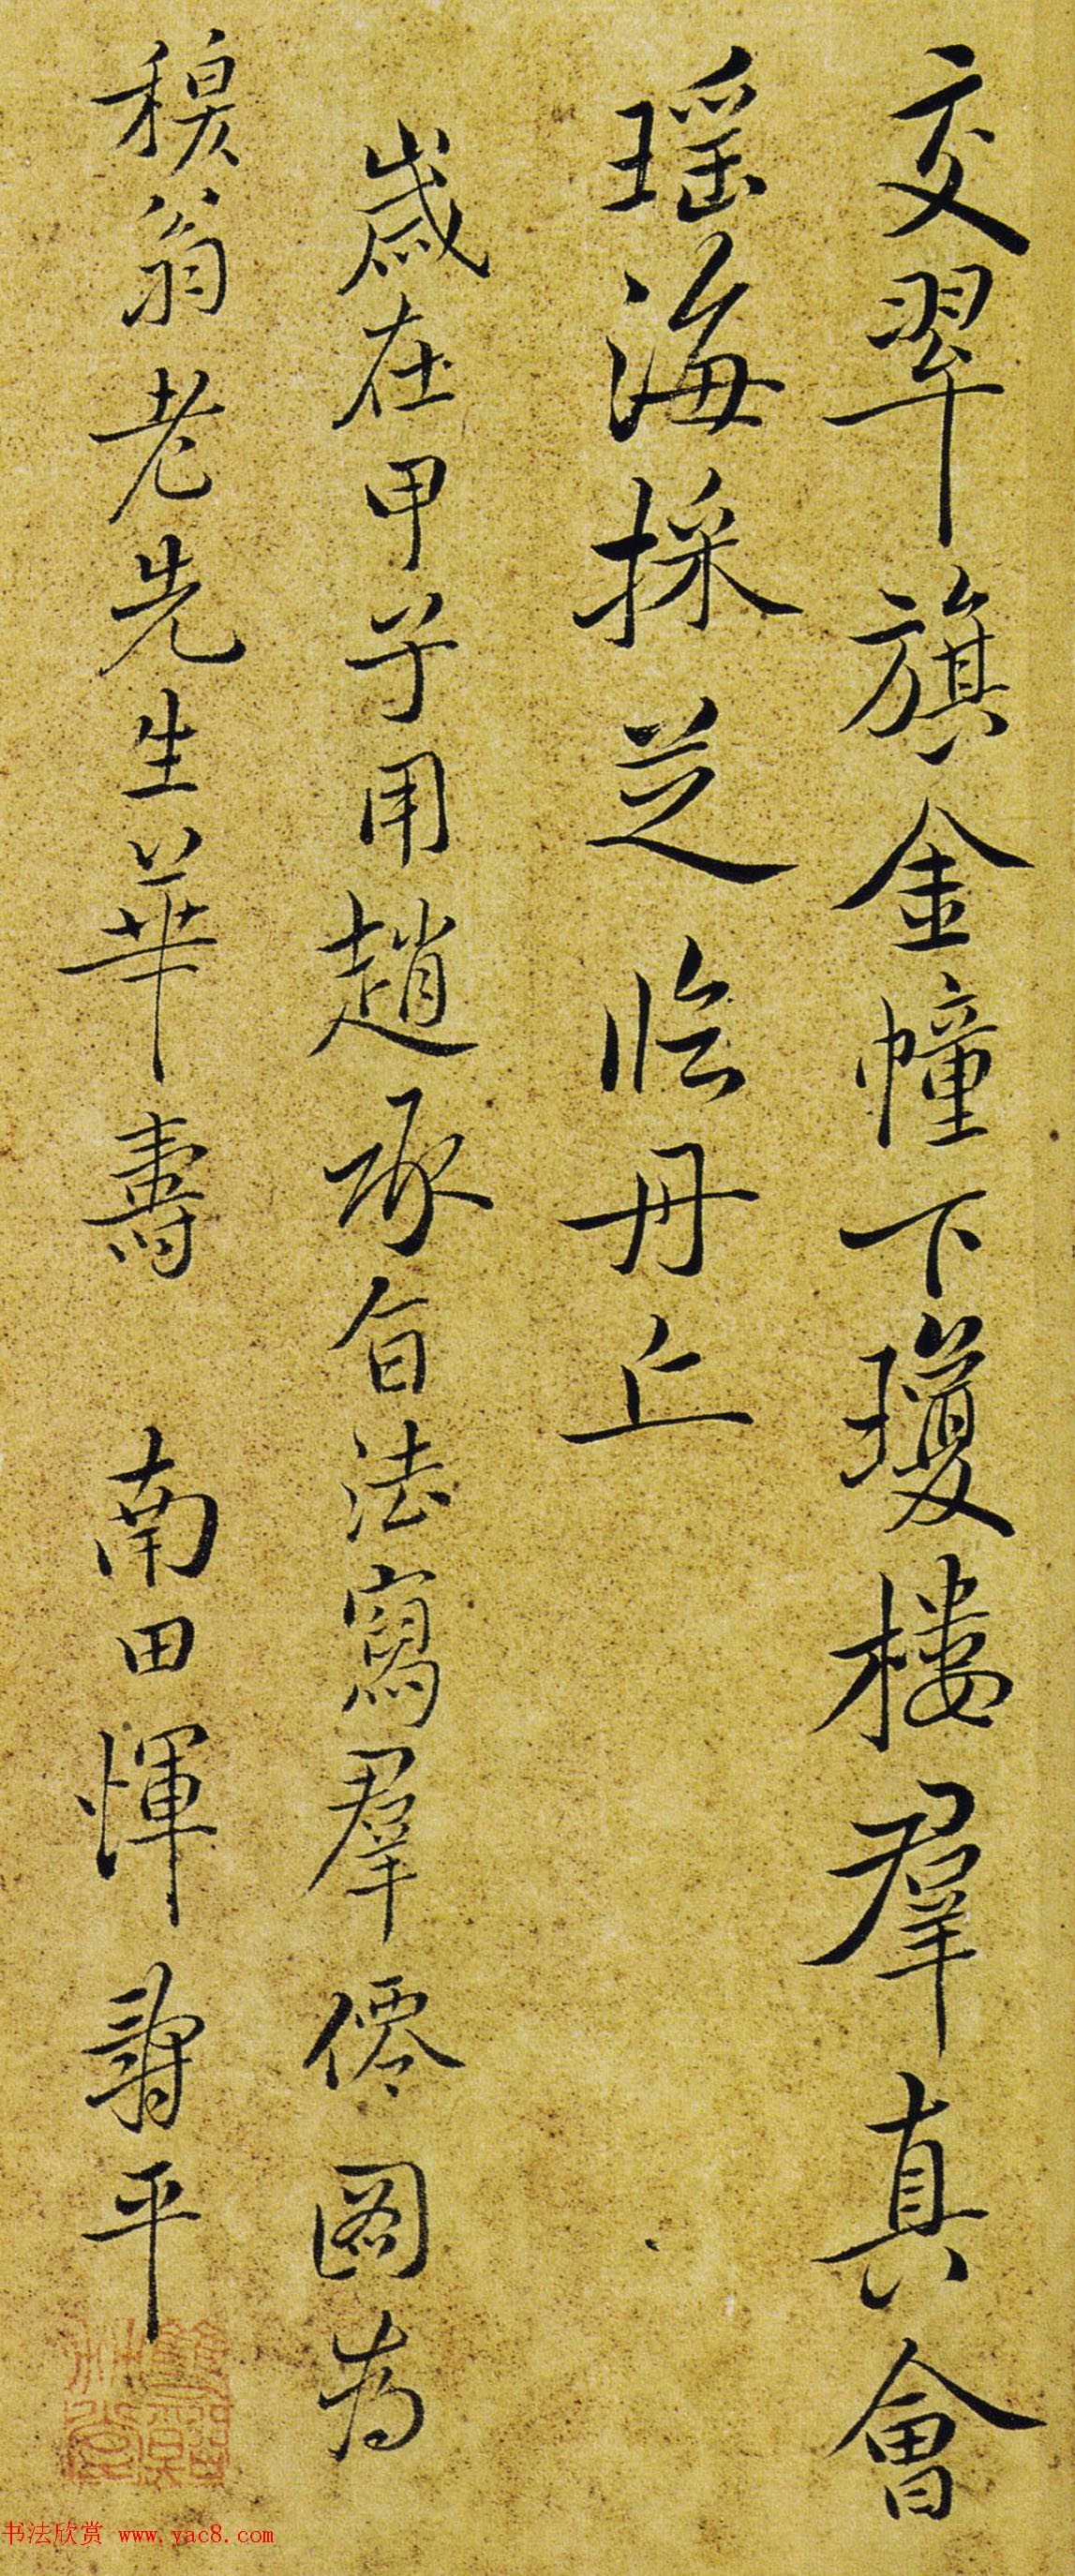 交翠旗金幢下瓊樓羣真會
瑶海採芝臨丹丘
歲在甲子用趙承旨法寫羣僊圖為
翁老先生華壽 南田惲壽平
书法欣赏 www.yac8.com